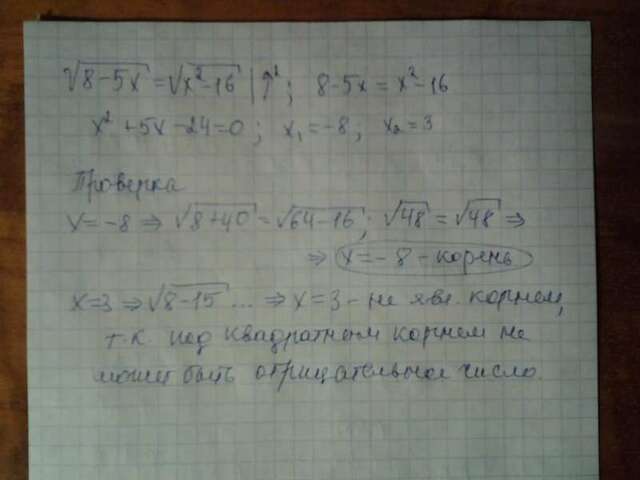 √8-5x = √x²-16 |↑²; 8-5x = x²-16
x² +5x -24=0; x₁=-8, x₂=3
Проверка
x=-8 ⇒ √8+40 = √64-16; √48 = √48 ⇒
⇒ x=-8 - корень
x=3 ⇒ √8-15 ... ⇒ x=3 - не явл. корнем,
т.к. под квадратным корнем не
может быть отрицательное число.